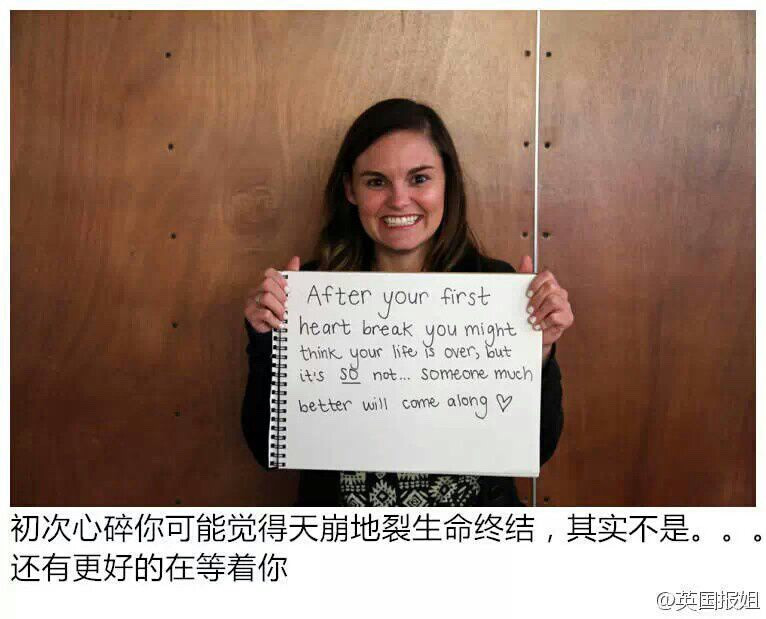 After your first
heart break you might
think your life is over, but
it's so not... someone much
better will come along ♡
初次心碎你可能觉得天崩地裂生命终结，其实不是。。。
还有更好的在等着你
@英国报姐